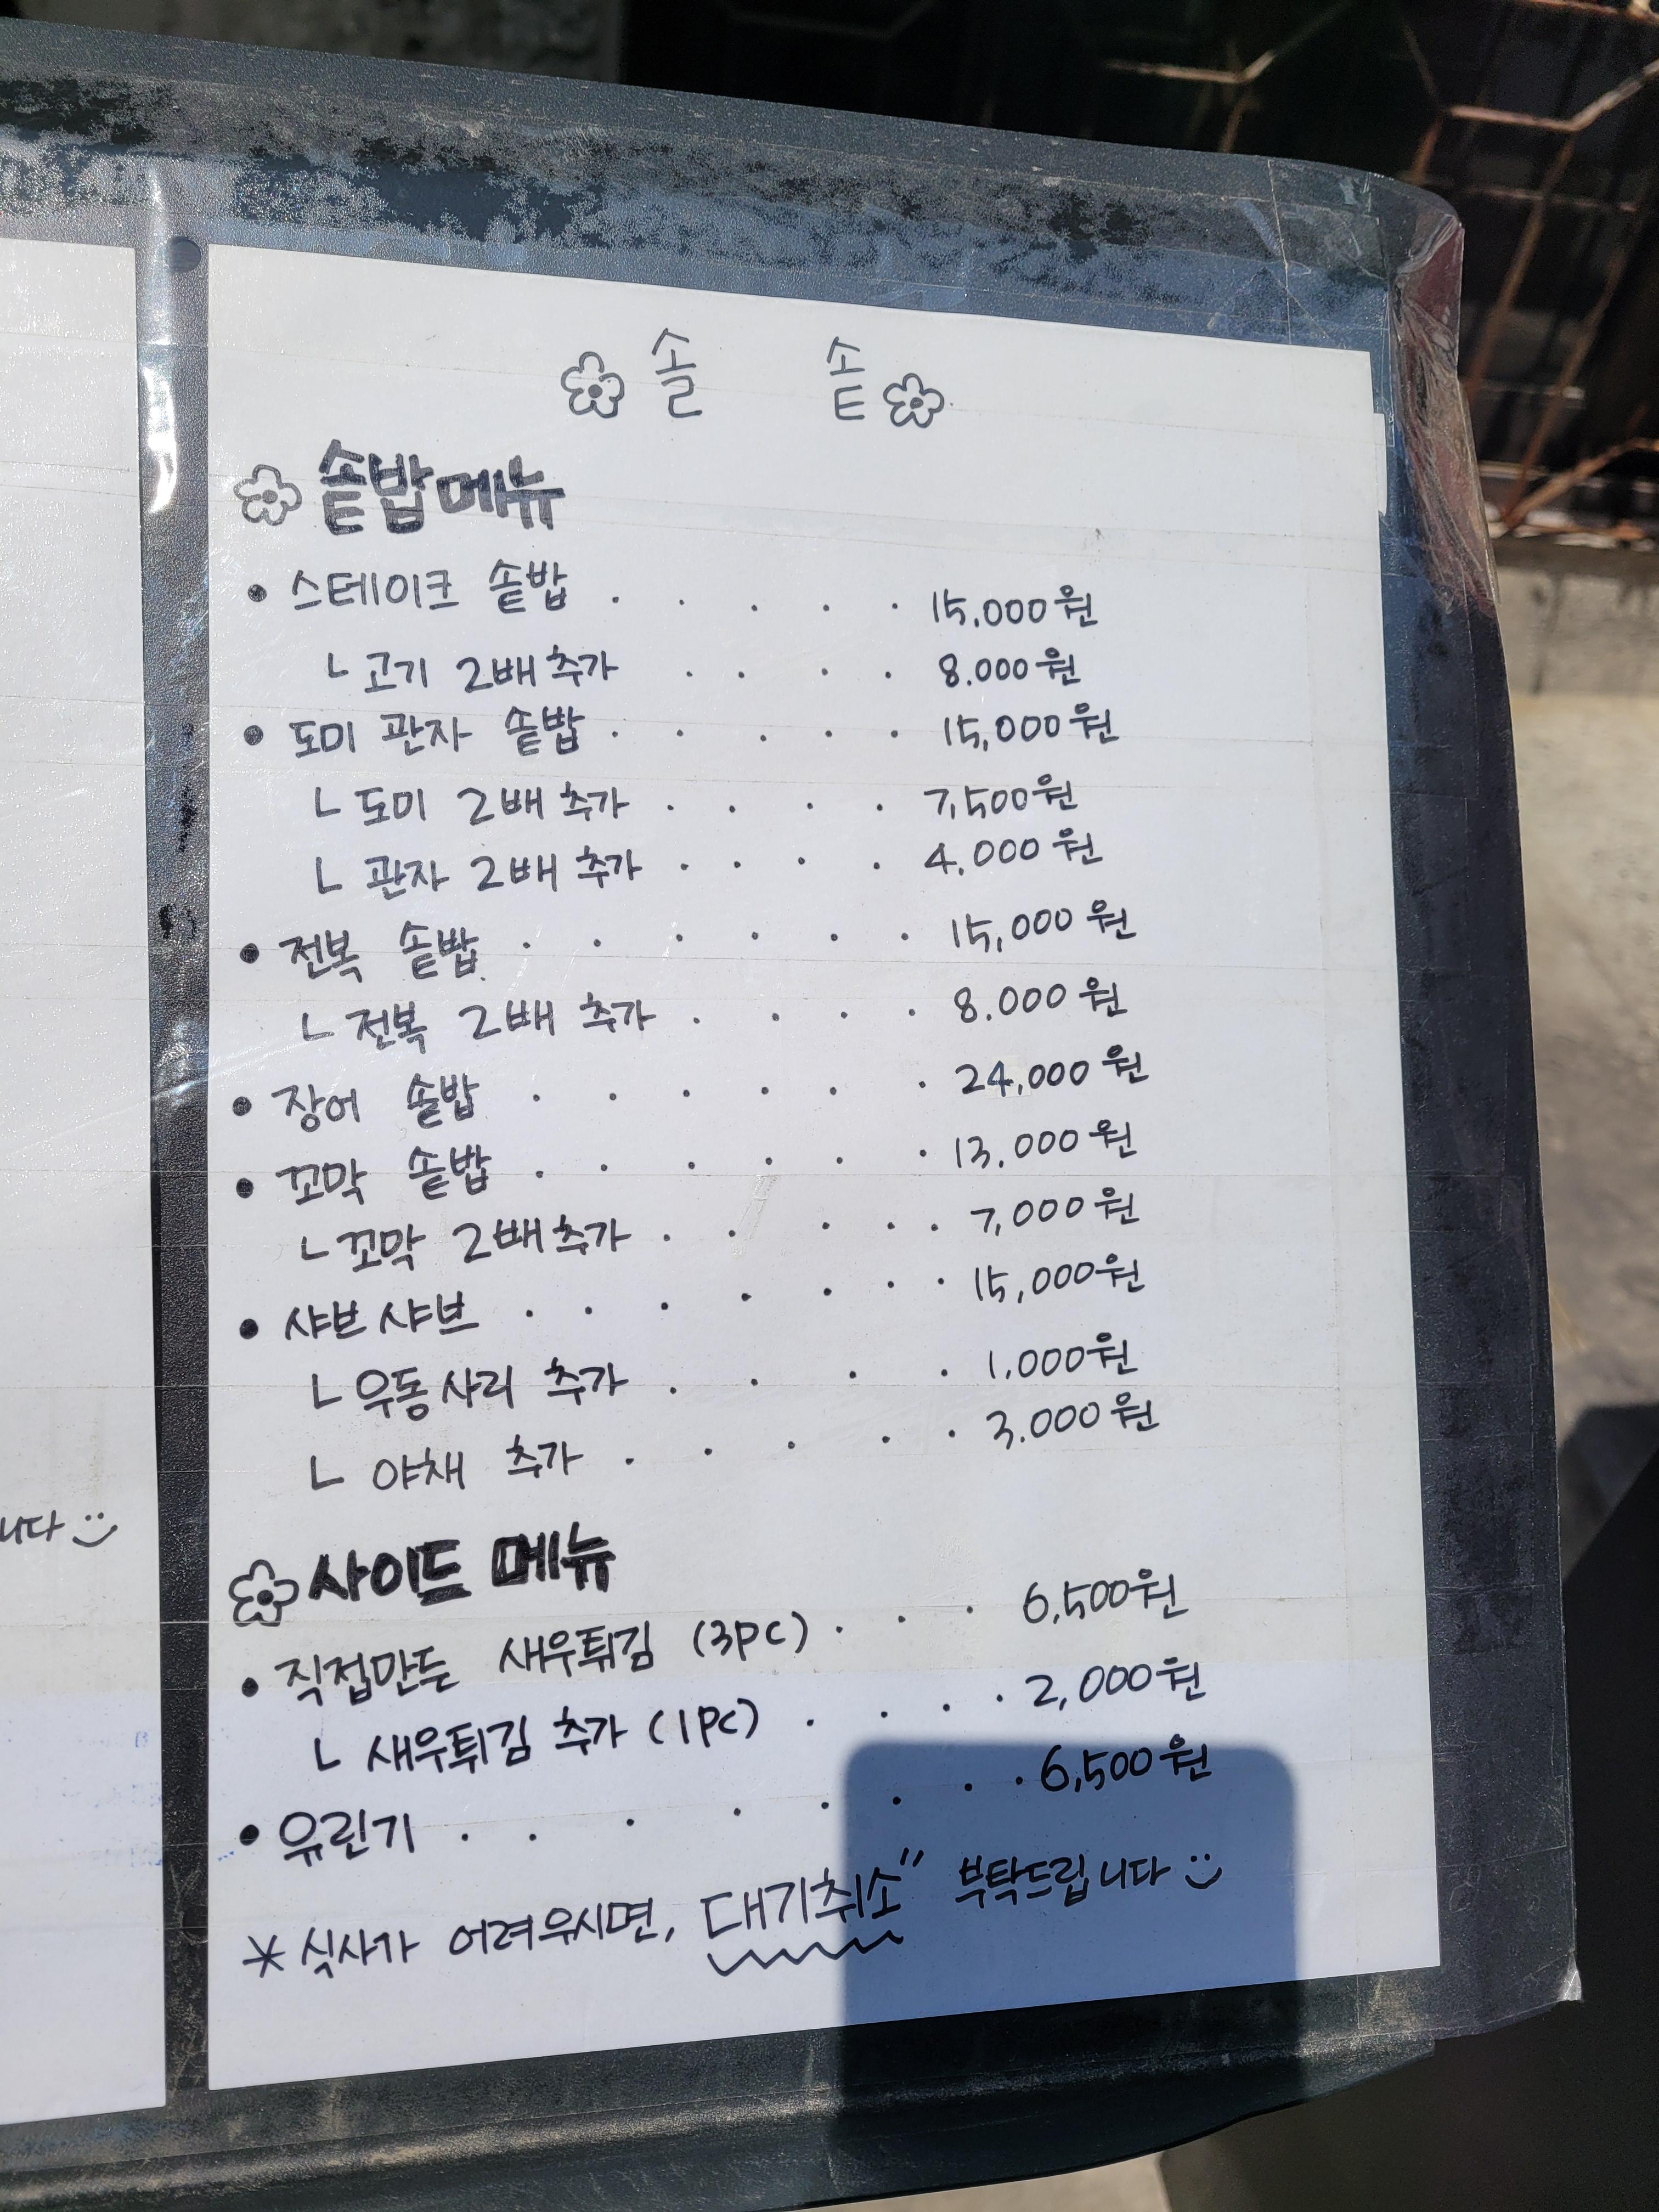 솔 솥
솥밥메뉴
• 스테이크 솥밥 . . . . . 15,000원
ㄴ고기 2배추가 . . . . 8.000원
• 도미 관자 솥밥 . . . . . 15,000원
ㄴ 도미 2배 추가 . . . . 7,500원
ㄴ 관자 2배 추가 . . . . 4,000원
• 전복 솥밥 . . . . . . 15,000원
ㄴ전복 2배 추가 . . . . 8.000원
• 장어 솥밥 . . . . . . 24,000원
• 꼬막 솥밥 . . . . . . 13,000원
ㄴ꼬막 2배추가 . . . . . 7,000원
• 샤브샤브 . . . . . . . 15,000원
ㄴ우동사리 추가 . . . . 1.000원
ㄴ 야채 추가 . . . . . 3.000원
사이드 메뉴
• 직접만든 새우튀김 (3pc) . . . 6,500원
ㄴ 새우튀김 추가 (1pc) . . . . 2,000원
• 유린기 . . . . . . . . 6,500원
* 식사가 어려우시면, 대기취소" 부탁드립니다
니다